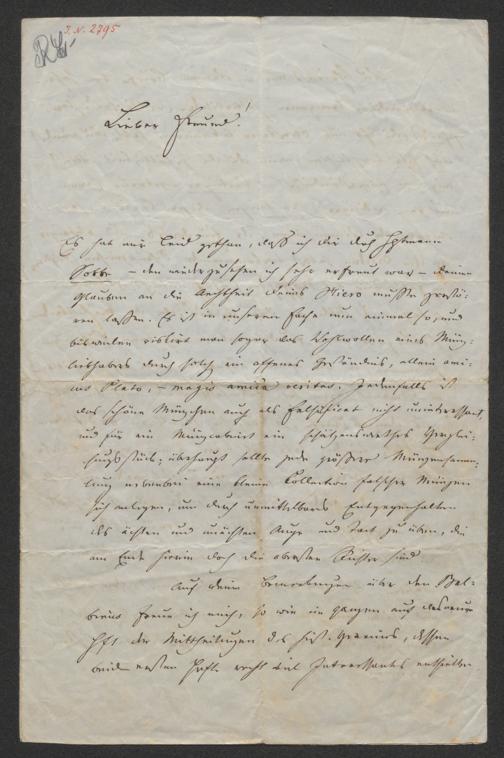 I. N. 2795
Lieber Freund!
Es hat mir Leid gethan, daß ich dir durch Hptmann
– den wiederzusehen ich sehr erfreut war – deinen
Glauben an die Aechtheit deines Hiero mußte zerstö-
ren lassen. Es ist in unserem Fache nun einmal so, und
bisweilen riskirt man sogar das Wohlwollen eines Münz-
liebhabers durch solch ein offenes Geständniß, allein ami-
cus Plato, – magis amica veritas. Jedenfalls ist
das schöne Münzchen auch als Falsificat nicht uninteressant,
und für ein Münzcabinet ein schätzenswerthes Verglei-
chungsstück; überhaupt sollte jede größere Münzsamm-
lung nebenbei eine kleine Collection falscher Münzen
sich anlegen, um durch unmittelbares Entgegenhalten
des ächten und unächten Auge und Tact zu üben, die
am Ende hierin doch die obersten Richter sind.
Auf deine Bemerkungen über den Bal-
binus freue ich mich, so wie im ganzen auf das neue
Heft der Mittheilungen des hist. Vereines, dessen
beide ersten Hefte recht viel Interessantes enthielten